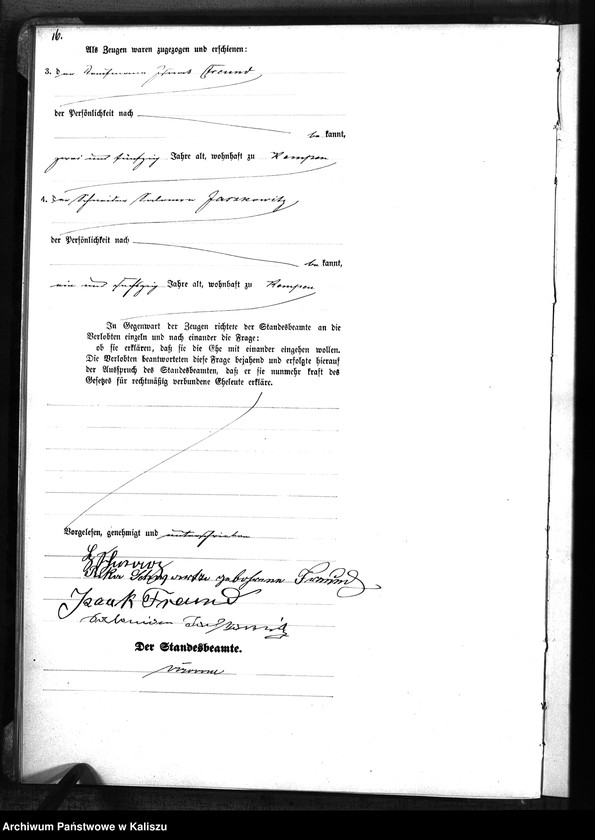 16.
Als Zeugen waren zugezogen und erschienen:
3. der Kaufmann Isaak Freund
der Persönlichkeit nach
be kannt,
zwei und fünfzig Jahre alt, wohnhaft zu Kempen
4. der Schneider Salomon Jaszkowitz
der Persönlichkeit nach
be kannt,
ein und fünfzig Jahre alt, wohnhaft zu Kempen
In Gegenwart der Zeugen richtete der Standesbeamte an die
Verlobten einzeln und nach einander die Frage:
ob sie erklären, daß sie die Ehe mit einander eingehen wollen.
Die Verlobten beantworteten diese Frage bejahend und erfolgte hierauf
der Ausspruch des Standesbeamten, daß er sie nunmehr kraft des
Gesetzes für rechtmäßig verbundene Eheleute erkläre.
Vorgelesen, genehmigt und unterschrieben
geborene Freund
Isaak Freund
Der Standesbeamte.
Archiwum Państwowe w Kaliszu